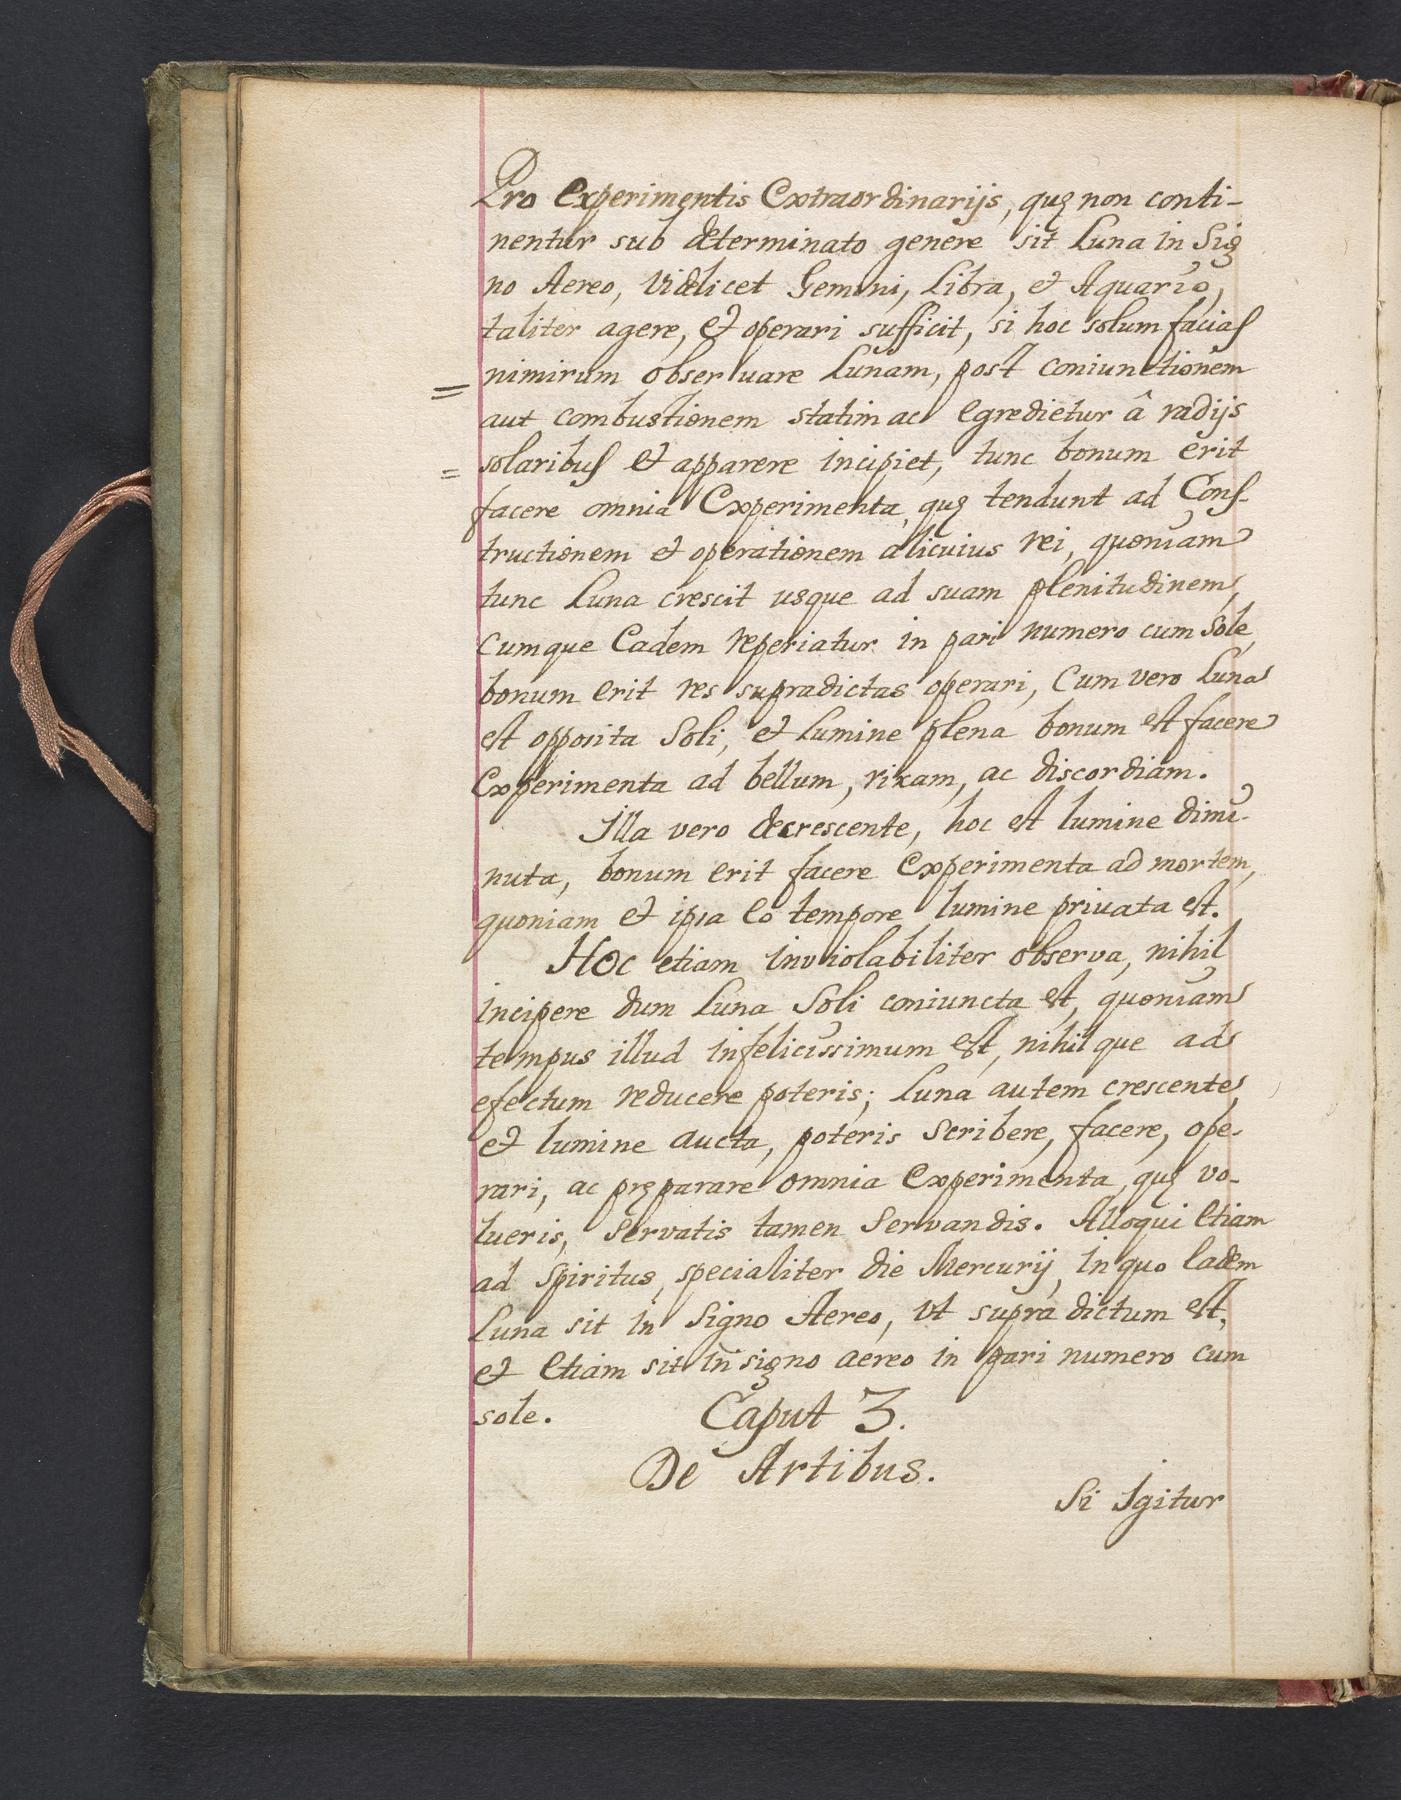 Pro Experimentis Extraordinarijs, quę non conti-
nentur sub determinato genere sit Luna in Sig
no Aereo, videlicet Gemini, Libra, et Aquario,
taliter agere, et operari sufficit, si hoc solum facias
nimirum obseruare Lunam, post coniunctionem
aut combustionem statim ac egredietur â radijs
solaribus et apparere incipiet, tunc bonum erit
facere omnia Experimenta, quę tendunt ad Cons-
tructionem et operationem alicuius rei, quoniam
tunc Luna crescit usque ad suam plenitudinem,
cumque Eadem reperiatur in pari numero cum Sole,
bonum erit res supradictas operari, Cum vero Luna
est opposita Soli, et Lumine plena bonum est facere
Experimenta ad bellum, rixam, ac discordiam.
Illa vero decrescente, hoc est lumine dimi-
nuta, bonum erit facere Experimenta ad mortem,
quoniam et ipsa eo tempore lumine priuata est.
Hoc etiam inviolabiliter observa, nihil
incipere dum Luna Soli coniuncta est, quoniam
tempus illud infelicissimum est, nihilque ad
efectum reducere poteris; Luna autem crescente,
et lumine aucta, poteris Scribere, facere, ope-
rari, ac pręparare omnia Experimenta, quę vo-
lueris, Servatis tamen Servandis. Alloqui etiam
ad Spiritus, specialiter die Mercurij, in quo Eadem
Luna sit in Signo Aereo, ut supra dictum est,
et etiam sit in signo aereo in pari numero cum
sole.
Caput 3.
De Artibus.
Si Igitur